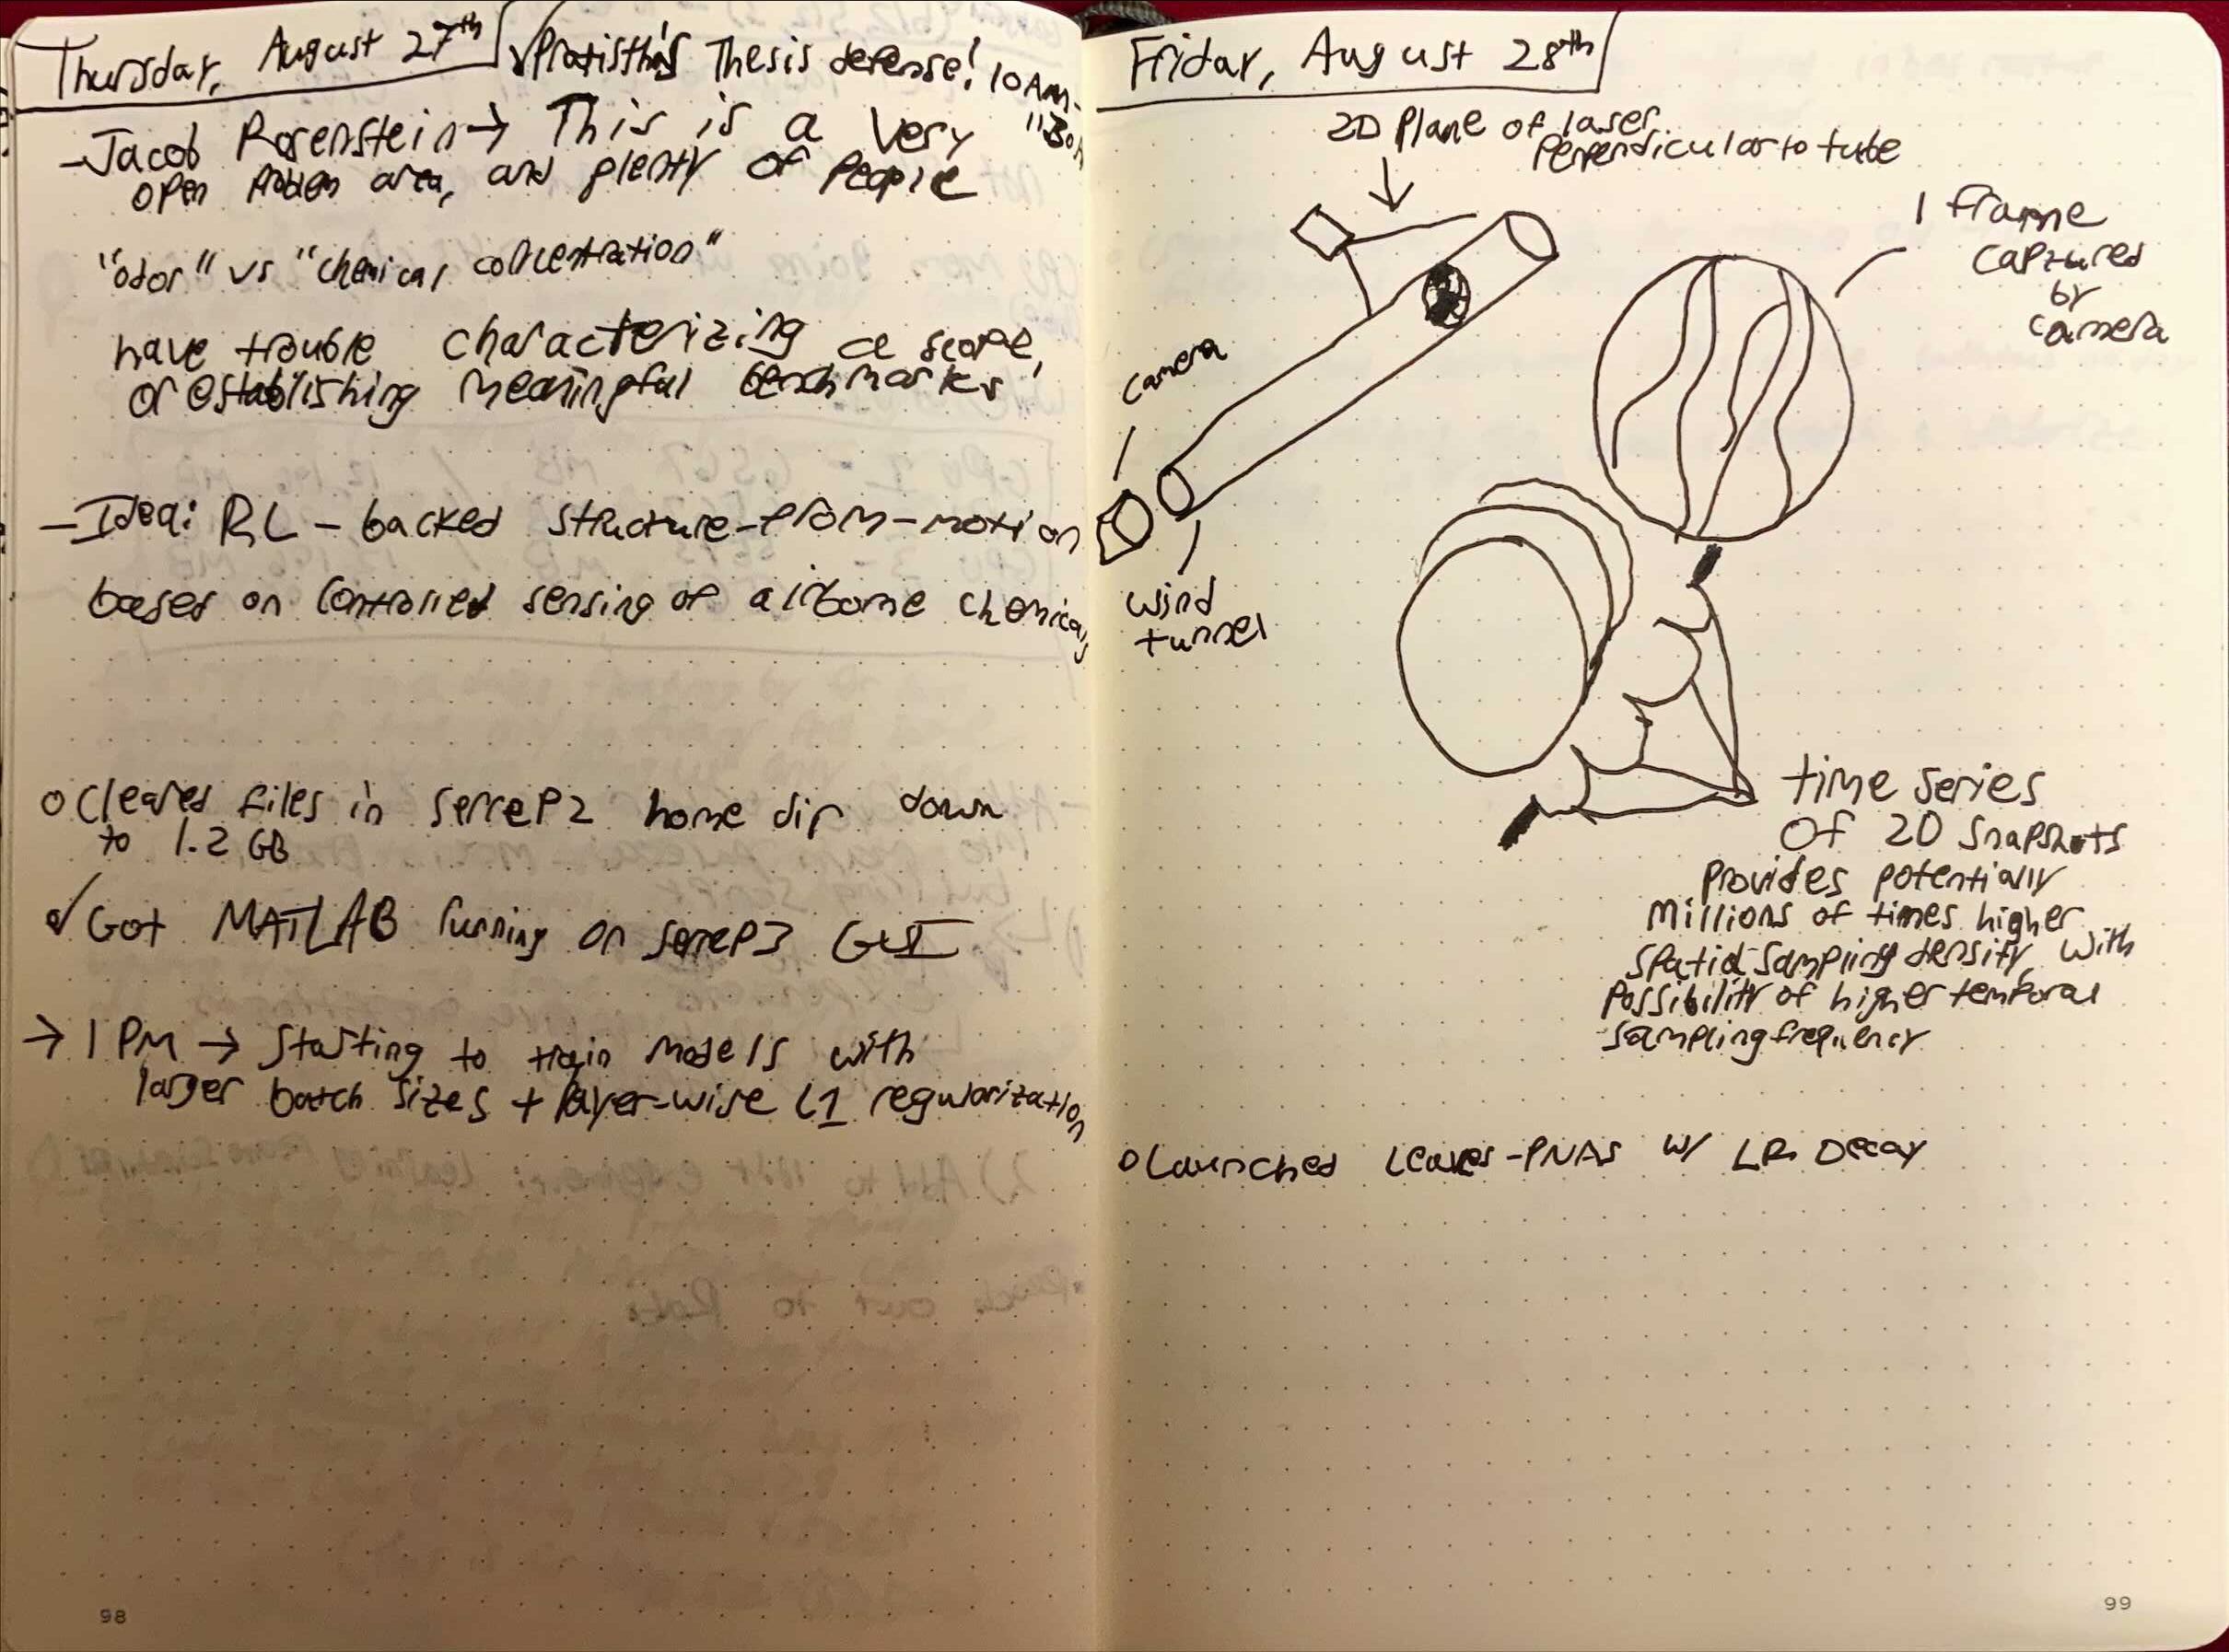 Thursday, August 27th
√Pratistha's Thesis defense! 10AM-
-Jacob Rosenstein→ This is a very
open problem area, and plenty of people
"odor" vs "chemical concentration"
have trouble characterizing a scope,
or establishing meaningful benchmarks
-Idea: RL-backed structure-from-motion
based on controlled sensing of airborne chemicals
o Cleared files in serrep2 home dir down
to 1.2 GB
√ Got MATLAB running on serrep3 GUI
→ 1 PM → Starting to train models with
larger batch sizes + layer-wise L1 regularization
98
Friday, August 28th
2D Plane of laser
perpendicular to tube
1 frame
captured
by
camera
camera
wind
tunnel
time series
of 2D snapshots
provides potentially
millions of times higher
spatial sampling density, with
possibility of higher temporal
sampling frequency
o Launched Leaves-PNAS w/ LR Decay
99